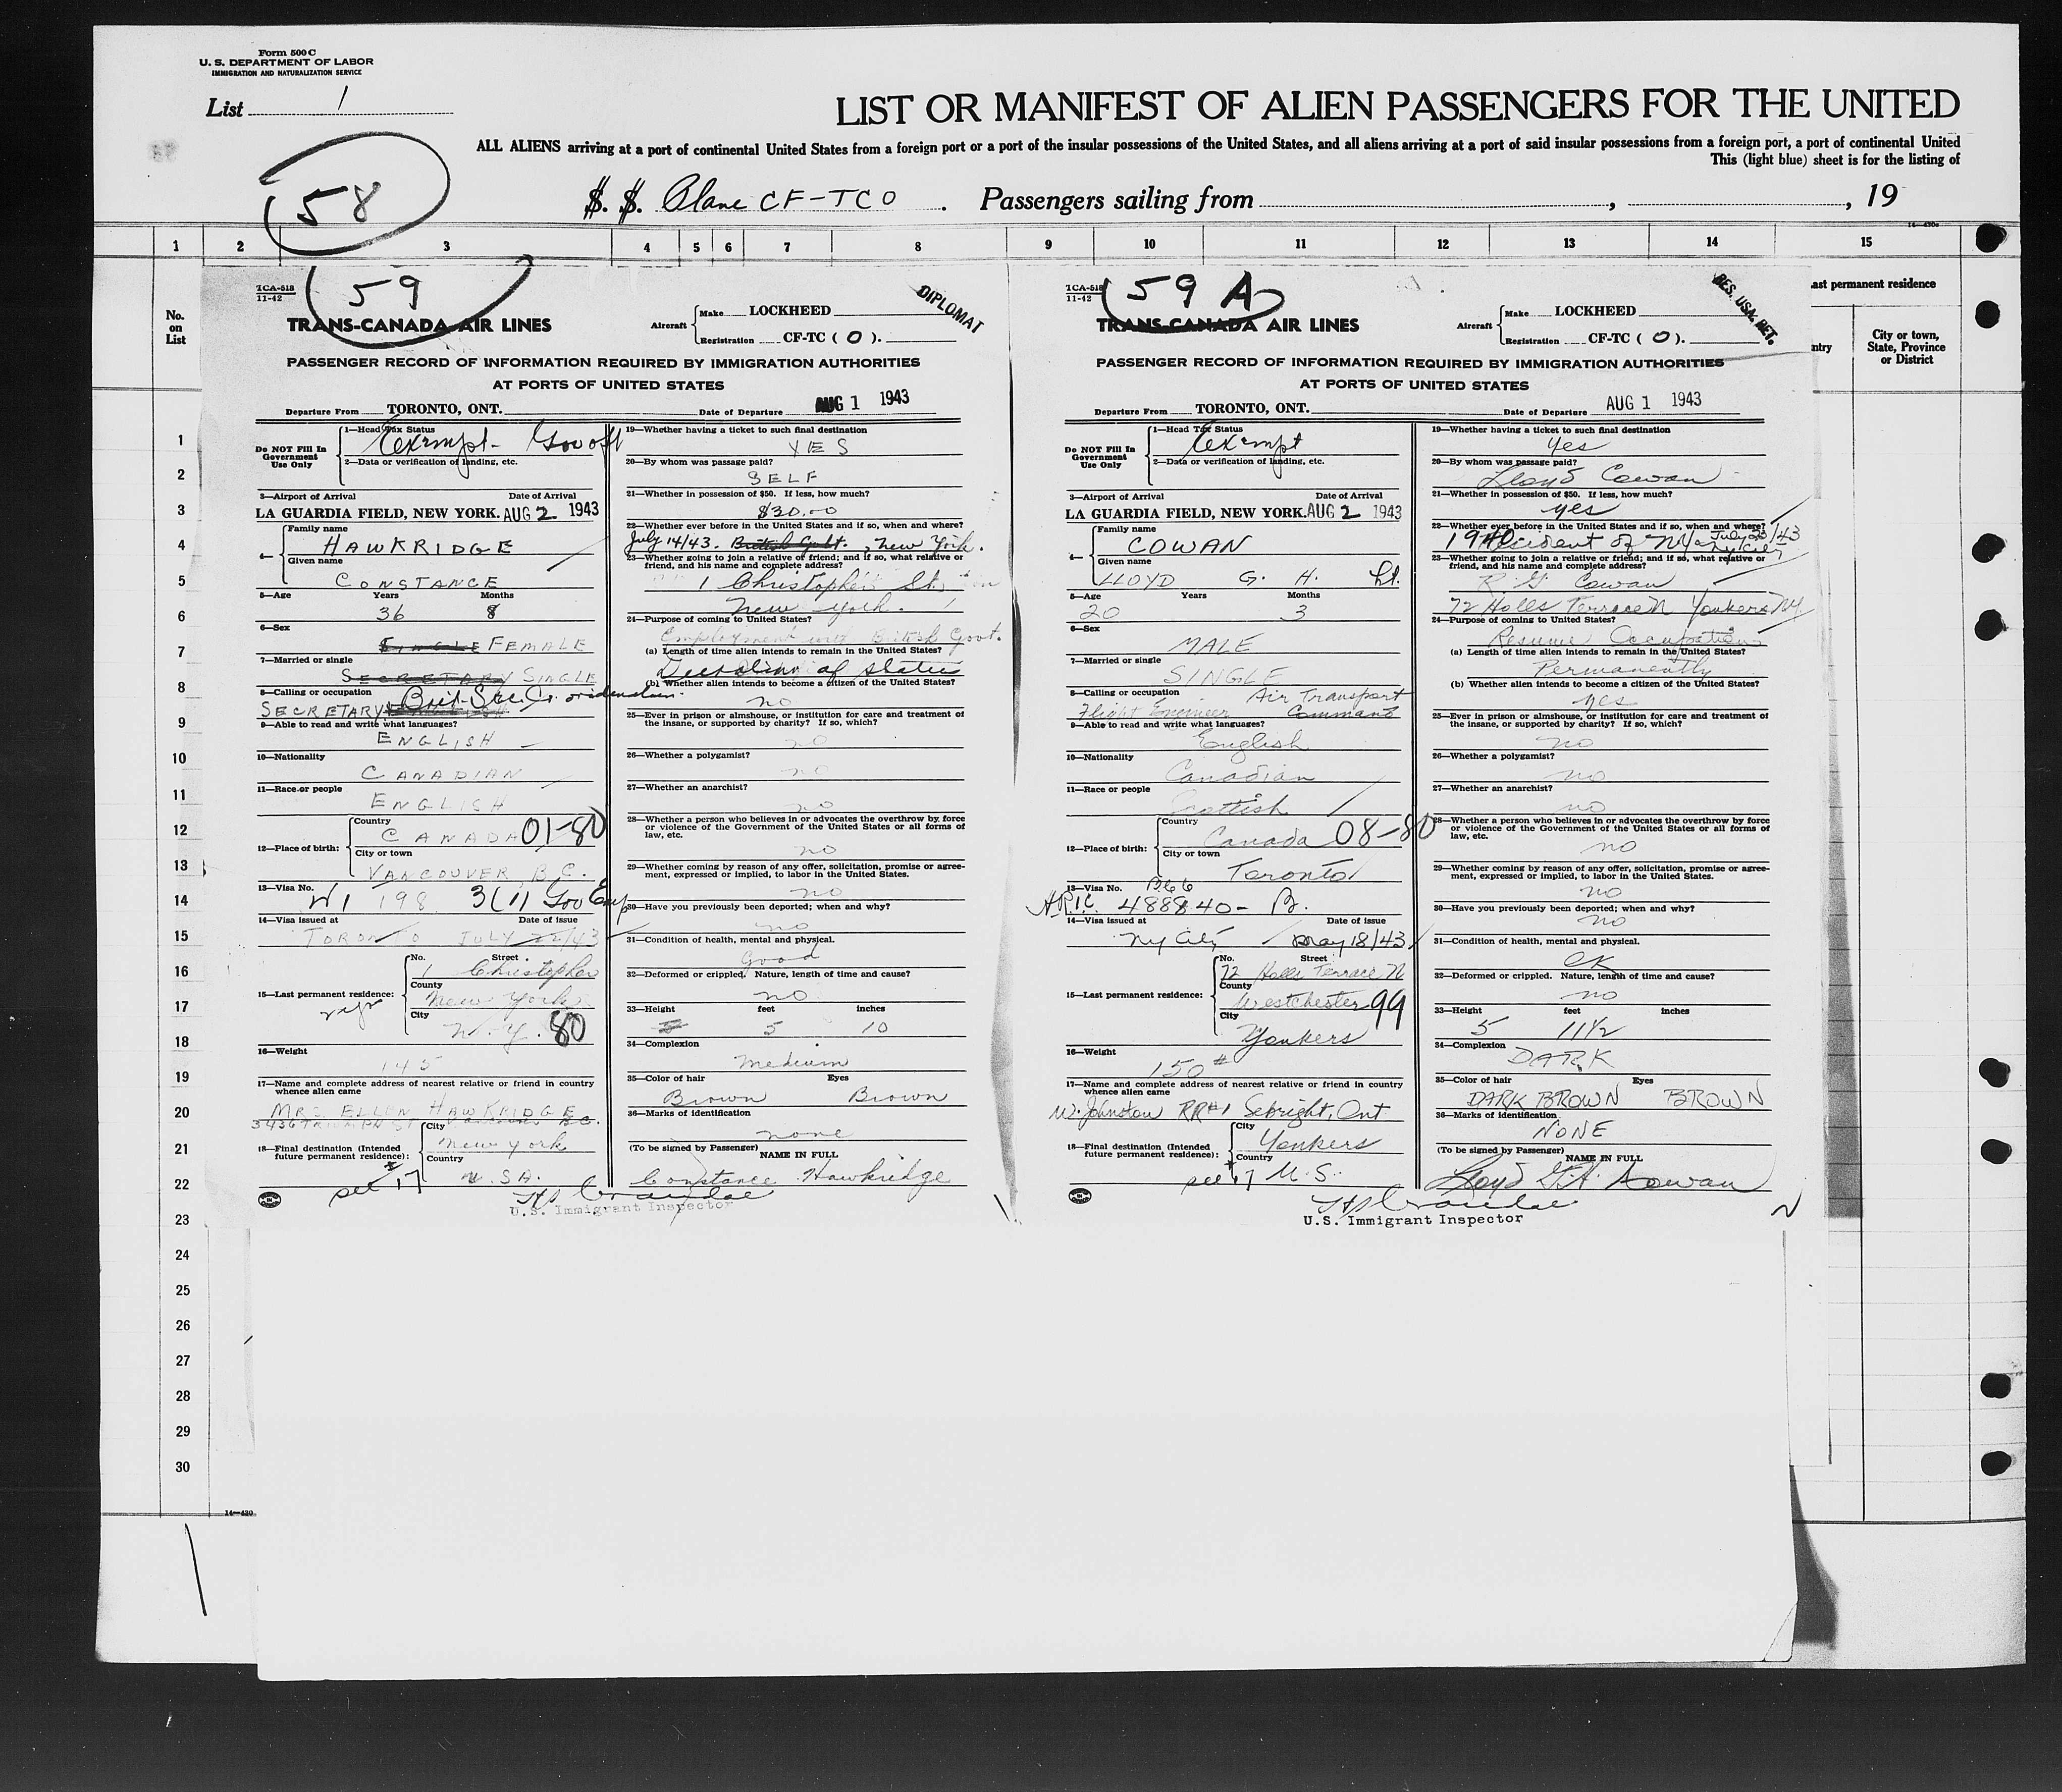 Form 500 C
U. S. DEPARTMENT OF LABOR
IMMIGRATION AND NATURALIZATION SERVICE
List 1
LIST OR MANIFEST OF ALIEN PASSENGERS FOR THE UNITED
ALL ALIENS arriving at a port of continental United States from a foreign port or a port of the insular possessions of the United States, and all aliens arriving at a port of said insular possessions from a foreign port, a port of continental United
This (light blue) sheet is for the listing of
58
S. S. Plane CF-TCO . Passengers sailing from , , 19
1 2 3 4 5 6 7 8 9 10 11 12 13 14 15
No. on List
ast permanent residence
ntry
City or town, State, Province or District
1
2
3
4
5
6
7
8
9
10
11
12
13
14
15
16
17
18
19
20
21
22
23
24
25
26
27
28
29
30
14-430
TCA-518
11-42
59
DIPLOMAT
TRANS-CANADA AIR LINES
Aircraft Make LOCKHEED
Registration CF-TC ( O ).
PASSENGER RECORD OF INFORMATION REQUIRED BY IMMIGRATION AUTHORITIES
AT PORTS OF UNITED STATES
Departure From TORONTO, ONT. Date of Departure AUG 1 1943
Do NOT Fill In Government Use Only
1—Head Tax Status
Exempt - Gov off
2—Data or verification of landing, etc.
3—Airport of Arrival Date of Arrival
LA GUARDIA FIELD, NEW YORK. AUG 2 1943
4— Family name
HAWKRIDGE
Given name
CONSTANCE
5—Age Years Months
36 8
6—Sex
SINGLE FEMALE
7—Married or single
SECRETARY SINGLE
8—Calling or occupation
SECRETARY
9—Able to read and write what languages?
ENGLISH
10—Nationality
CANADIAN
11—Race or people
ENGLISH
12—Place of birth: Country
CANADA 01-80
City or town
VANCOUVER, B.C.
13—Visa No.
198 3(1) Gov Emp
14—Visa issued at Date of issue
TORONTO JULY 22/43
15—Last permanent residence: No. Street
1 Christopher
County
New York
City
N.Y. 80
16—Weight
145
17—Name and complete address of nearest relative or friend in country whence alien came
MRS. ELLEN HAWKRIDGE
18—Final destination (Intended future permanent residence): City
New York
Country
U.S.A.
see 17
19—Whether having a ticket to such final destination
YES
20—By whom was passage paid?
SELF
21—Whether in possession of $50. If less, how much?
$30.00
22—Whether ever before in the United States and if so, when and where?
July 14/43. British Govt. , New York.
23—Whether going to join a relative or friend; and if so, what relative or friend, and his name and complete address?
1 Christopher St.
New York.
24—Purpose of coming to United States?
Employment with British Govt.
(a) Length of time alien intends to remain in the United States?
Duration of status
(b) Whether alien intends to become a citizen of the United States?
no
25—Ever in prison or almshouse, or institution for care and treatment of the insane, or supported by charity? If so, which?
no
26—Whether a polygamist?
no
27—Whether an anarchist?
no
28—Whether a person who believes in or advocates the overthrow by force or violence of the Government of the United States or all forms of law, etc.
no
29—Whether coming by reason of any offer, solicitation, promise or agreement, expressed or implied, to labor in the United States.
no
30—Have you previously been deported; when and why?
no
31—Condition of health, mental and physical.
Good
32—Deformed or crippled. Nature, length of time and cause?
no
33—Height feet inches
5 10
34—Complexion
Medium
35—Color of hair Eyes
Brown Brown
36—Marks of identification
none
(To be signed by Passenger) NAME IN FULL
Constance Hawkridge
U.S. Immigrant Inspector
TCA-518
11-42
59 A
RES. USA. RET.
TRANS-CANADA AIR LINES
Aircraft Make LOCKHEED
Registration CF-TC ( O ).
PASSENGER RECORD OF INFORMATION REQUIRED BY IMMIGRATION AUTHORITIES
AT PORTS OF UNITED STATES
Departure From TORONTO, ONT. Date of Departure AUG 1 1943
Do NOT Fill In Government Use Only
1—Head Tax Status
Exempt
2—Data or verification of landing, etc.
3—Airport of Arrival Date of Arrival
LA GUARDIA FIELD, NEW YORK. AUG 2 1943
4— Family name
COWAN
Given name
LLOYD G. H. Lt.
5—Age Years Months
20 3
6—Sex
MALE
7—Married or single
SINGLE
8—Calling or occupation Air Transport
Flight Engineer Command
9—Able to read and write what languages?
English
10—Nationality
Canadian
11—Race or people
Scottish
12—Place of birth: Country
Canada 08-80
City or town
Toronto
13—Visa No.
488840 - B.
14—Visa issued at Date of issue
NY City May 18/43
15—Last permanent residence: No. Street
72 Holls Terrace N
County
Westchester 99
City
Yonkers
16—Weight
150 #
17—Name and complete address of nearest relative or friend in country whence alien came
W. Johnston RR#1 Sebright, Ont
18—Final destination (Intended future permanent residence): City
Yonkers
Country
U.S.
see 17
19—Whether having a ticket to such final destination
Yes
20—By whom was passage paid?
Lloyd Cowan
21—Whether in possession of $50. If less, how much?
yes
22—Whether ever before in the United States and if so, when and where?
resident of NY
23—Whether going to join a relative or friend; and if so, what relative or friend, and his name and complete address?
R. G. Cowan
72 Holls Terrace N Yonkers NY
24—Purpose of coming to United States?
Resume Occupation
(a) Length of time alien intends to remain in the United States?
Permanently
(b) Whether alien intends to become a citizen of the United States?
yes
25—Ever in prison or almshouse, or institution for care and treatment of the insane, or supported by charity? If so, which?
no
26—Whether a polygamist?
no
27—Whether an anarchist?
no
28—Whether a person who believes in or advocates the overthrow by force or violence of the Government of the United States or all forms of law, etc.
no
29—Whether coming by reason of any offer, solicitation, promise or agreement, expressed or implied, to labor in the United States.
no
30—Have you previously been deported; when and why?
no
31—Condition of health, mental and physical.
OK
32—Deformed or crippled. Nature, length of time and cause?
no
33—Height feet inches
5 11½
34—Complexion
DARK
35—Color of hair Eyes
DARK BROWN BROWN
36—Marks of identification
NONE
(To be signed by Passenger) NAME IN FULL
Lloyd G.H. Cowan
U.S. Immigrant Inspector